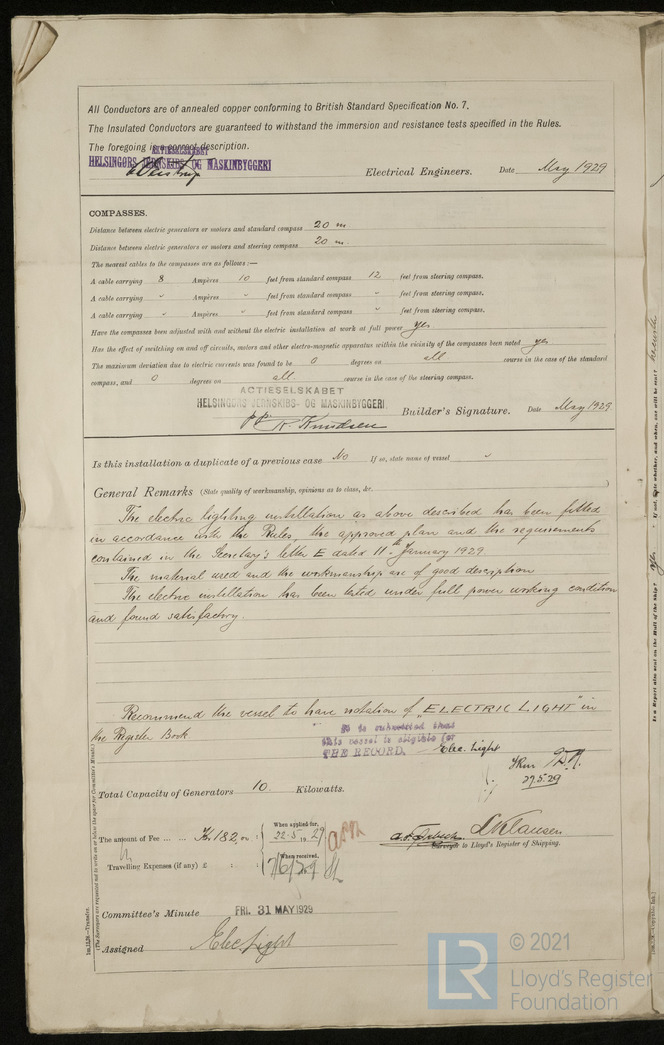 All Conductors are of annealed copper conforming to British Standard Specification No. 7.
The Insulated Conductors are guaranteed to withstand the immersion and resistance tests specified in the Rules.
The foregoing is a correct description.
AKTIESELSKABET
HELSINGØRS JERNSKIBS- OG MASKINBYGGERI
Electrical Engineers. Date May 1929
COMPASSES.
Distance between electric generators or motors and standard compass 20 m
Distance between electric generators or motors and steering compass 20 m.
The nearest cables to the compasses are as follows:—
A cable carrying 8 Ampères 10 feet from standard compass 12 feet from steering compass.
A cable carrying " Ampères " feet from standard compass " feet from steering compass.
A cable carrying " Ampères " feet from standard compass " feet from steering compass.
Have the compasses been adjusted with and without the electric installation at work at full power yes
Has the effect of switching on and off circuits, motors and other electro-magnetic apparatus within the vicinity of the compasses been noted yes
The maximum deviation due to electric currents was found to be 0 degrees on all course in the case of the standard
compass, and 0 degrees on all course in the case of the steering compass.
ACTIESELSKABET
HELSINGØRS JERNSKIBS- OG MASKINBYGGERI
pp K. Knudsen Builder's Signature. Date May 1929
Is this installation a duplicate of a previous case No If so, state name of vessel "
General Remarks (State quality of workmanship, opinions as to class, &c.)
The electric lighting installation as above described has been fitted
in accordance with the Rules, the approved plan and the requirements
contained in the Secretary's letter E dated 11th January 1929
The material used and the workmanship are of good description
The electric installation has been tested under full power working condition
and found satisfactory.
Recommend the vessel to have notation of "ELECTRIC LIGHT" in
the Register Book
It is submitted that
this vessel is eligible for
THE RECORD. Elec. Light
27.5.29
Total Capacity of Generators 10. Kilowatts.
The amount of Fee ... ... Kr. 182,00 : When applied for, 22-5 1929.
Travelling Expenses (if any) £ : : When received, 7/6/29
Surveyor to Lloyd's Register of Shipping.
Committee's Minute FRI. 31 MAY 1929
Assigned Elec Light
1m,11,28.—Transfer.
(The Surveyors are requested not to write on or below the space for Committee's Minute.)
© 2021
LR
Lloyd's Register
Foundation